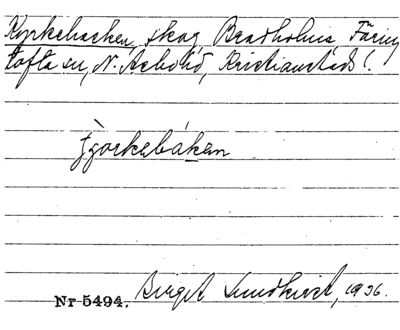 Kyrkebacken, skog, Bradholma, Färing
tofta sn, N. Åsbo hd, Kristianstads l.
Birgit Sundkvist, 1936.
Nr 5494.